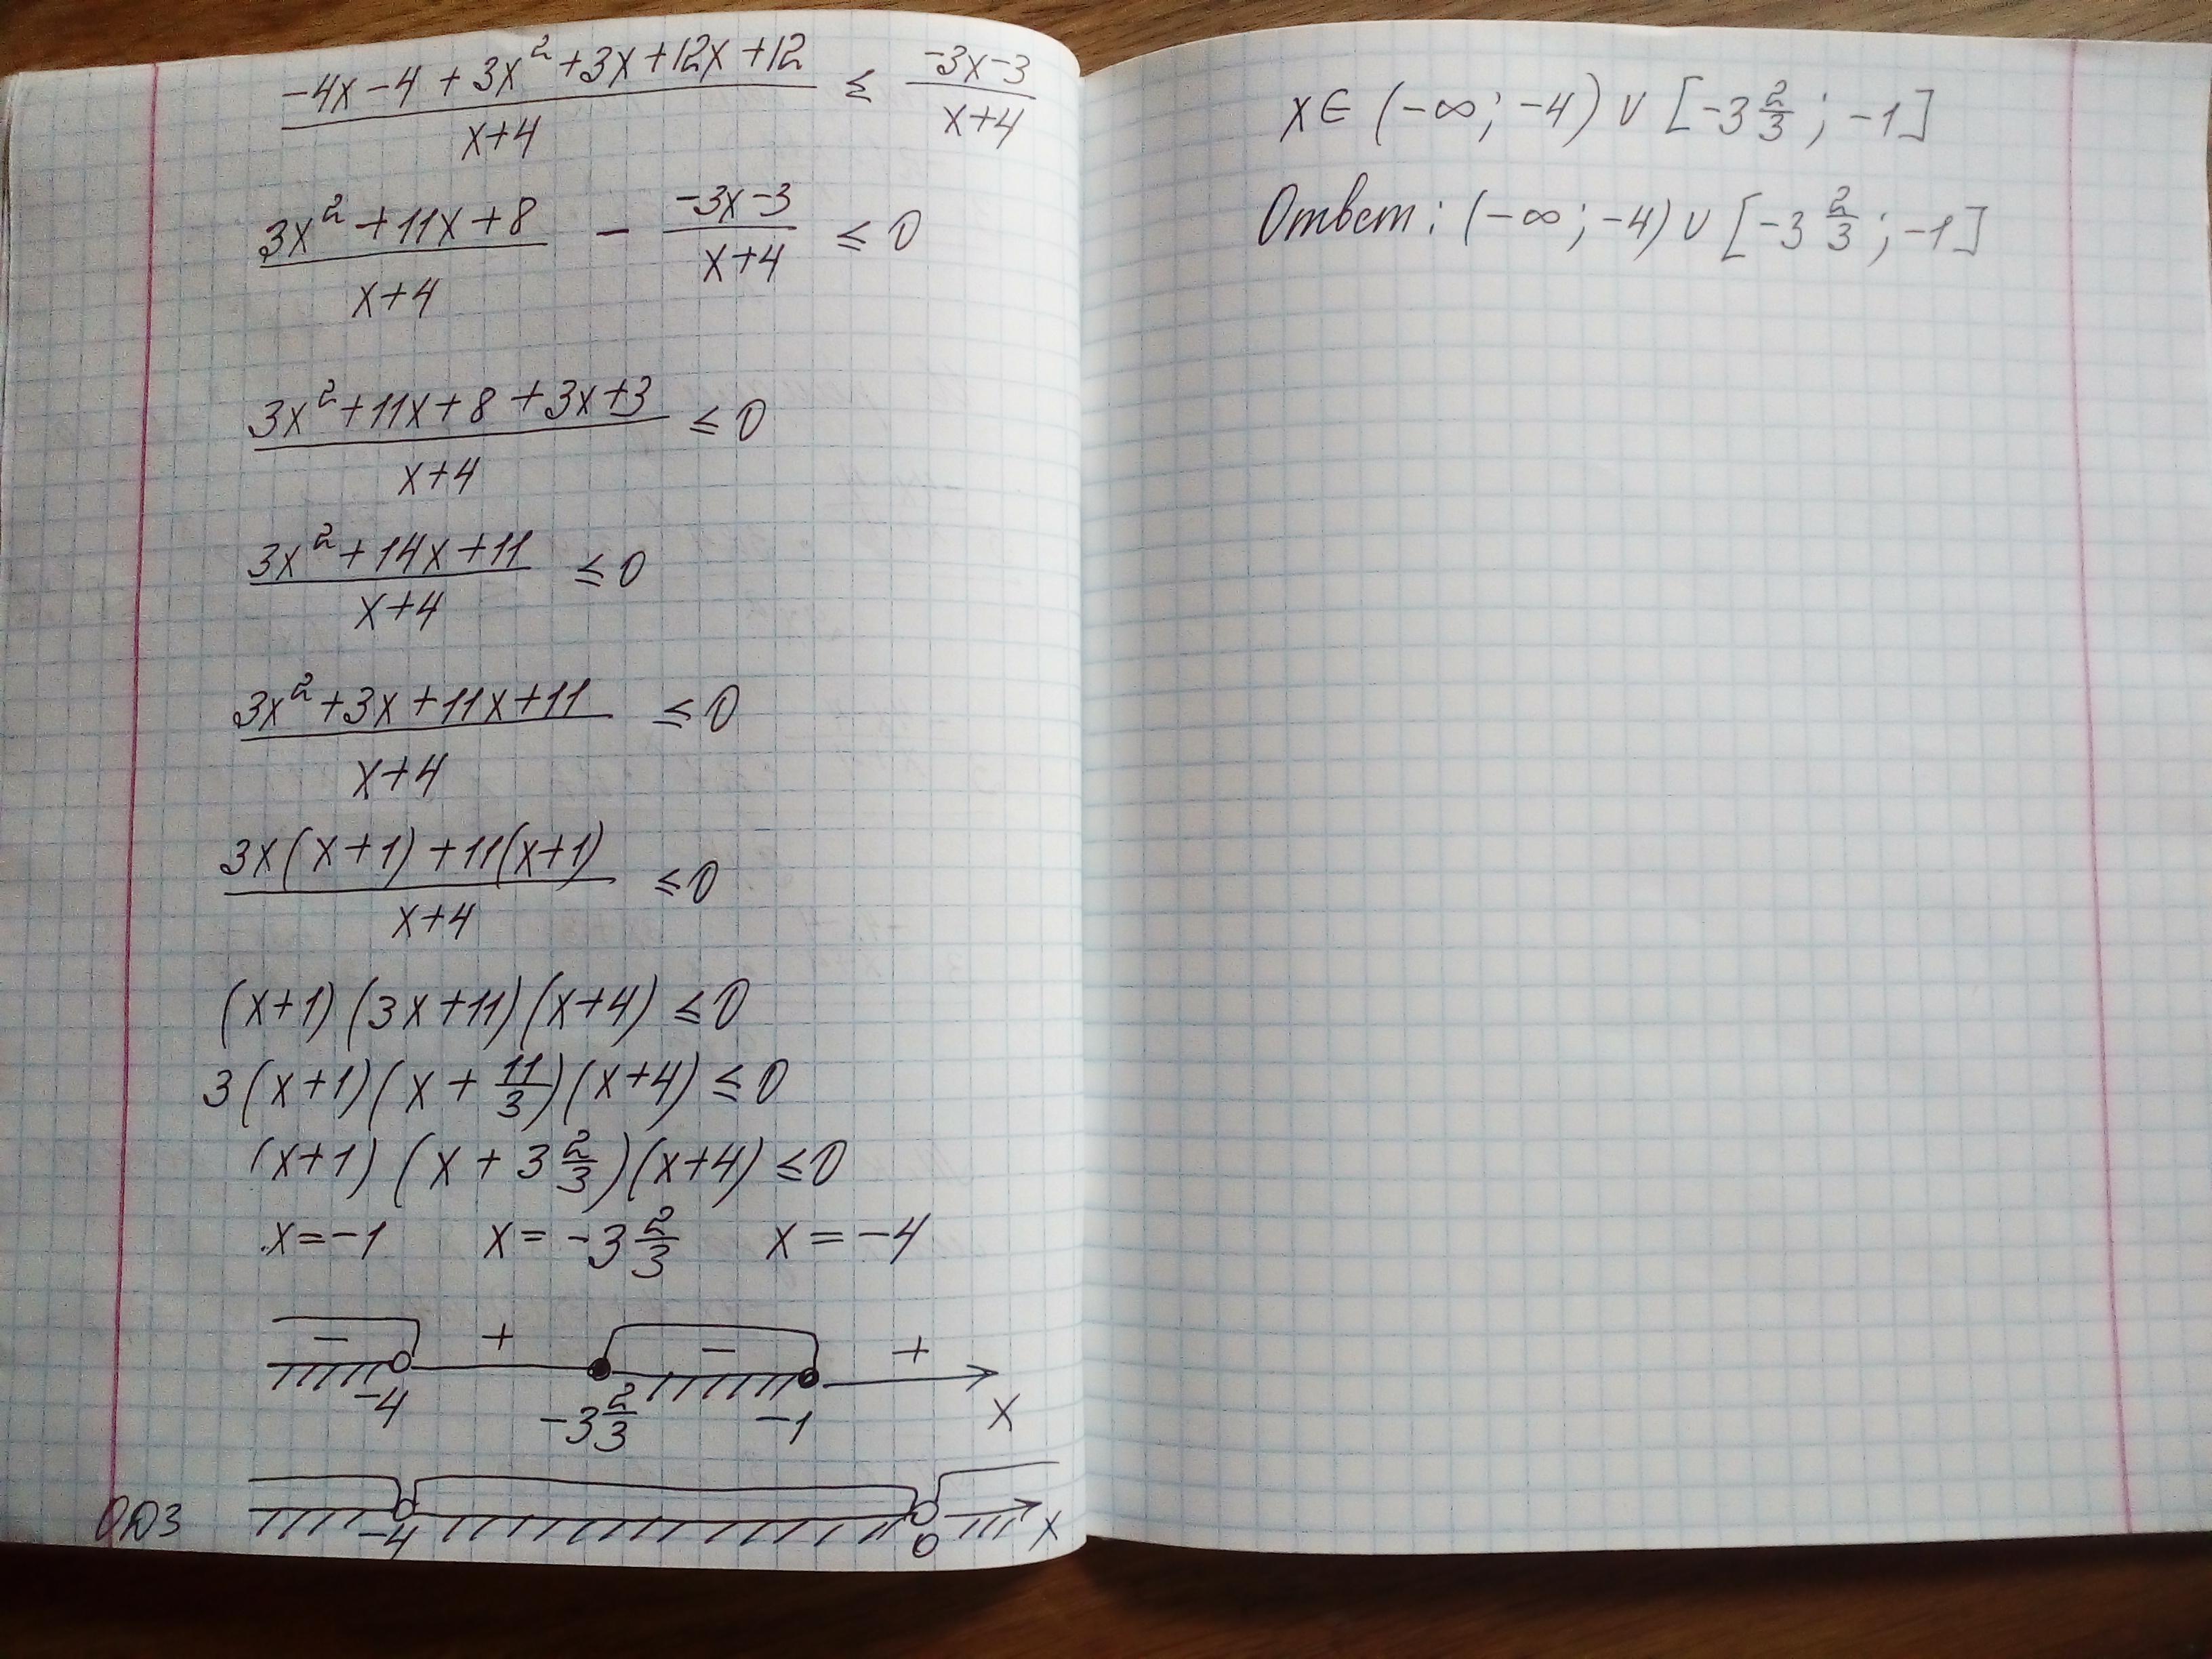 (-4x-4+3x²+3x+12x+12)/(x+4) ≤ (-3x-3)/(x+4)
(3x²+11x+8)/(x+4) - (-3x-3)/(x+4) ≤ 0
(3x²+11x+8+3x+3)/(x+4) ≤ 0
(3x²+14x+11)/(x+4) ≤ 0
(3x²+3x+11x+11)/(x+4) ≤ 0
(3x(x+1)+11(x+1))/(x+4) ≤ 0
(x+1)(3x+11)(x+4) ≤ 0
3(x+1)(x+11/3)(x+4) ≤ 0
(x+1)(x+3 2/3)(x+4) ≤ 0
x=-1 x=-3 2/3 x=-4
- + - +
-4 -3 2/3 -1 x
ОДЗ -4 0 x
x∈(-∞;-4)∪[-3 2/3;-1]
Ответ: (-∞;-4)∪[-3 2/3;-1]